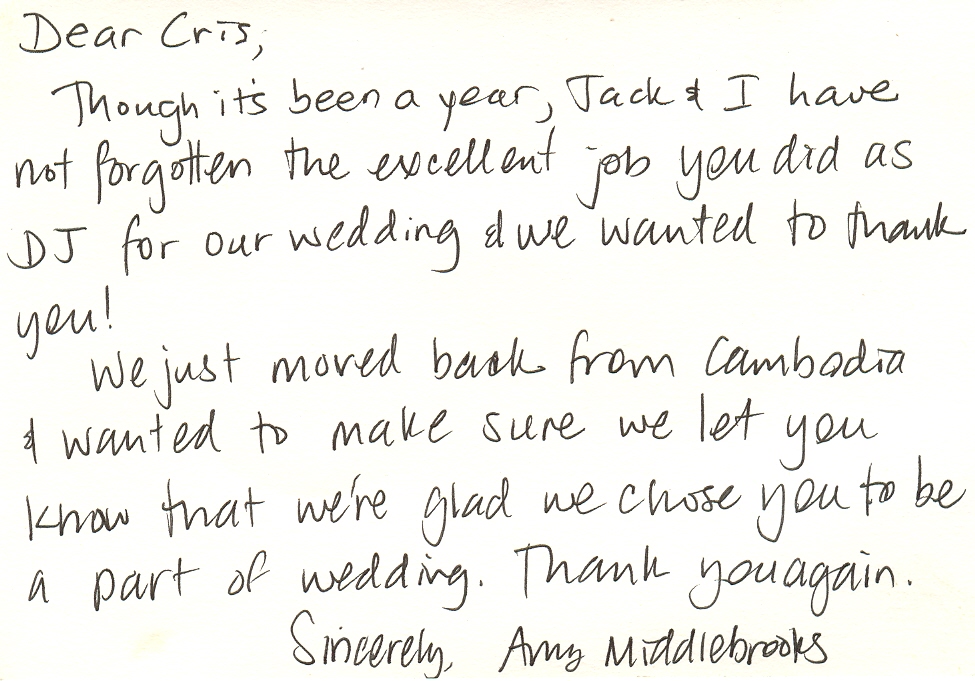 Dear Cris,
Though it's been a year, Jack & I have
not forgotten the excellent job you did as
DJ for our wedding & we wanted to thank
you!
We just moved back from Cambodia
& wanted to make sure we let you
know that we're glad we chose you to be
a part of wedding. Thank you again.
Sincerely, Amy Middlebrooks